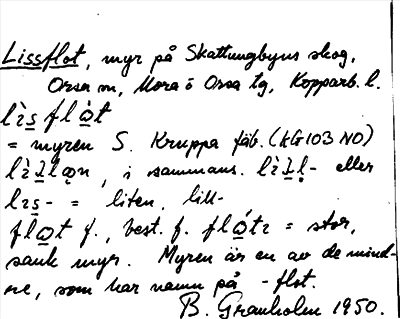 Lissflot, myr på Skattungbyns skog,
Orsa sn, Mora o Orsa tg, Kopparb. l.
lìs̲ flò̲t
= myren S. Kruppa fäb. (kG103 NO)
i sammans. eller
= liten, lill-
flo̲t f., best. f. fló̲tɪ = stor,
sank myr. Myren är en av de mind-
re, som har namn på -flot.
B. Granholm 1950.